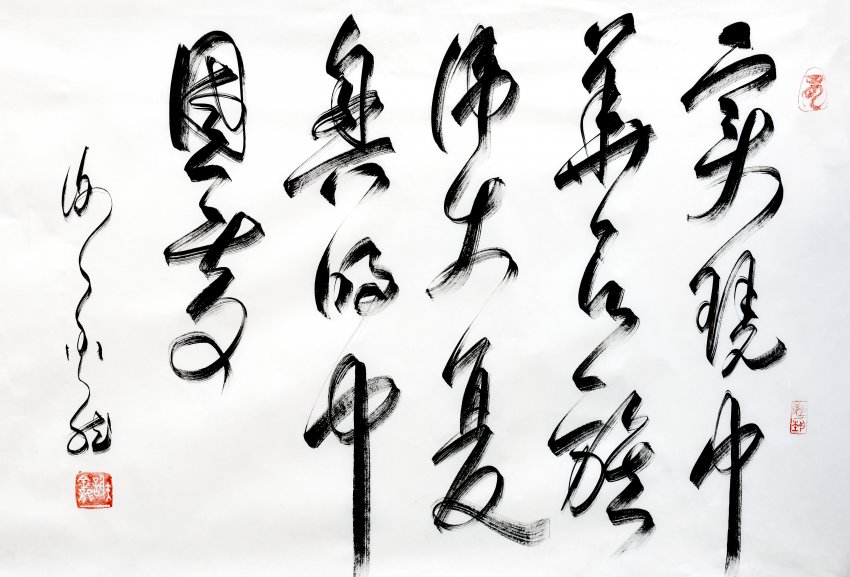 实现中
华民族
伟大复
兴的中
国梦